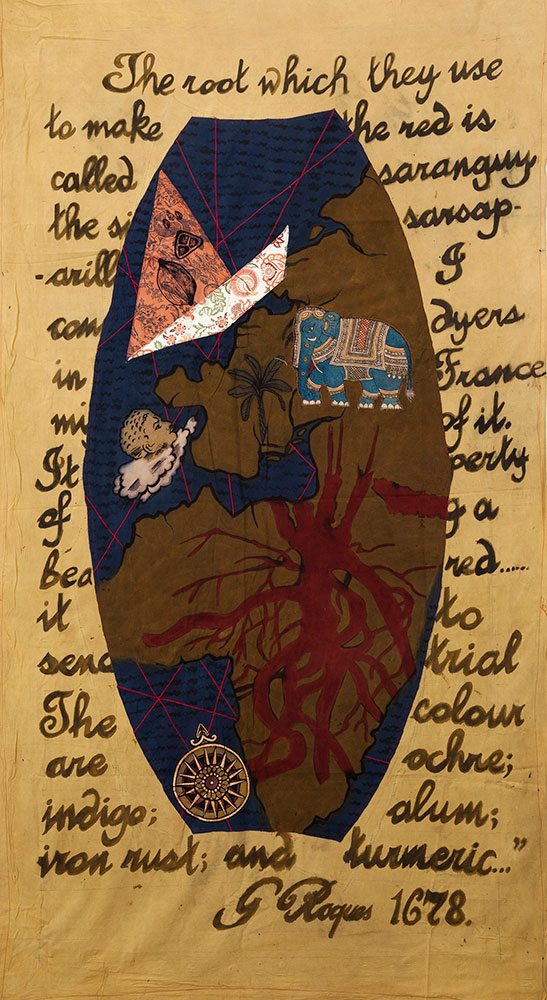 The root which they use
to make the red is
called saranguy
the si sarsap-
-arill I
com dyers
in France
mi of it.
It perty
of g a
bea red......
it to
send trial
The colour
are ochre;
indigo; alum;
iron rust; and turmeric..."
G Roques 1678.